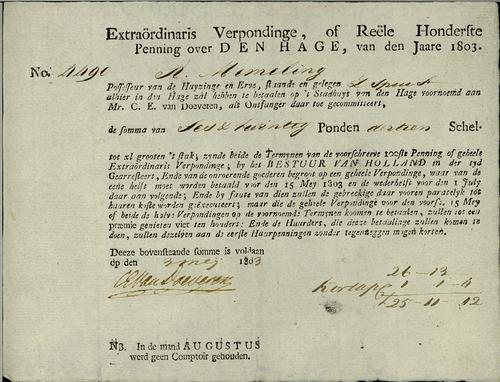 Extraördinaris Verpondinge, of Reële Honderfte
Penning over DEN HAGE, van den Jaare 1803.
No. 4490 A. Memeling
Poſſeſſeur van de Huyzinge en Erve, ſtaande en gelegen L Spui
alhier in den Hage zal hebben te betaalen op 't Stadhuys van den Hage voornoemd aan
Mr. C. E. van Doeveren, als Ontfanger daar toe gecommitteert,
de ſomma van Ses & twintig Ponden dertien Schel-
tot xl grooten 't ſtuk, zynde beide de Termynen van de voorſchreve 100ſte Penning of geheele
Extraordinaris Verpondinge, by het BESTUUR VAN HOLLAND in der tyd
Gearreſteert, Ende van de onroerende goederen begroot op een geheele Verpondinge, waar van de
eene helft moet worden betaald voor den 15 Mey 1803 en de wederhelft voor den 1 July
daar aan volgende; Ende by faute van dien zullen de gebreekige daar vooren paratelyk tot
haaren koſte worden geëxecuteert; maar die de geheele Verpondinge voor den voorſz. 15 Mey
of beide de halve Verpondingen op de voornoemde Termynen koomen te betaalen, zullen tot een
præmie genieten vier ten hondert: Ende de Huurders, die deeze betaalinge zullen komen te
doen, zullen dezelven aan de eerſte Huurpenningen zonder tegenzeggen mogen korten.
Deeze bovenſtaande ſomme is voldaan
op den 3 mey 1803
CEVanDoeveren
26 - 13
1 - 1 - 4
£ 25 - 11 - 12
NB. In de mand AUGUSTUS
werd geen Comptoir gehouden.